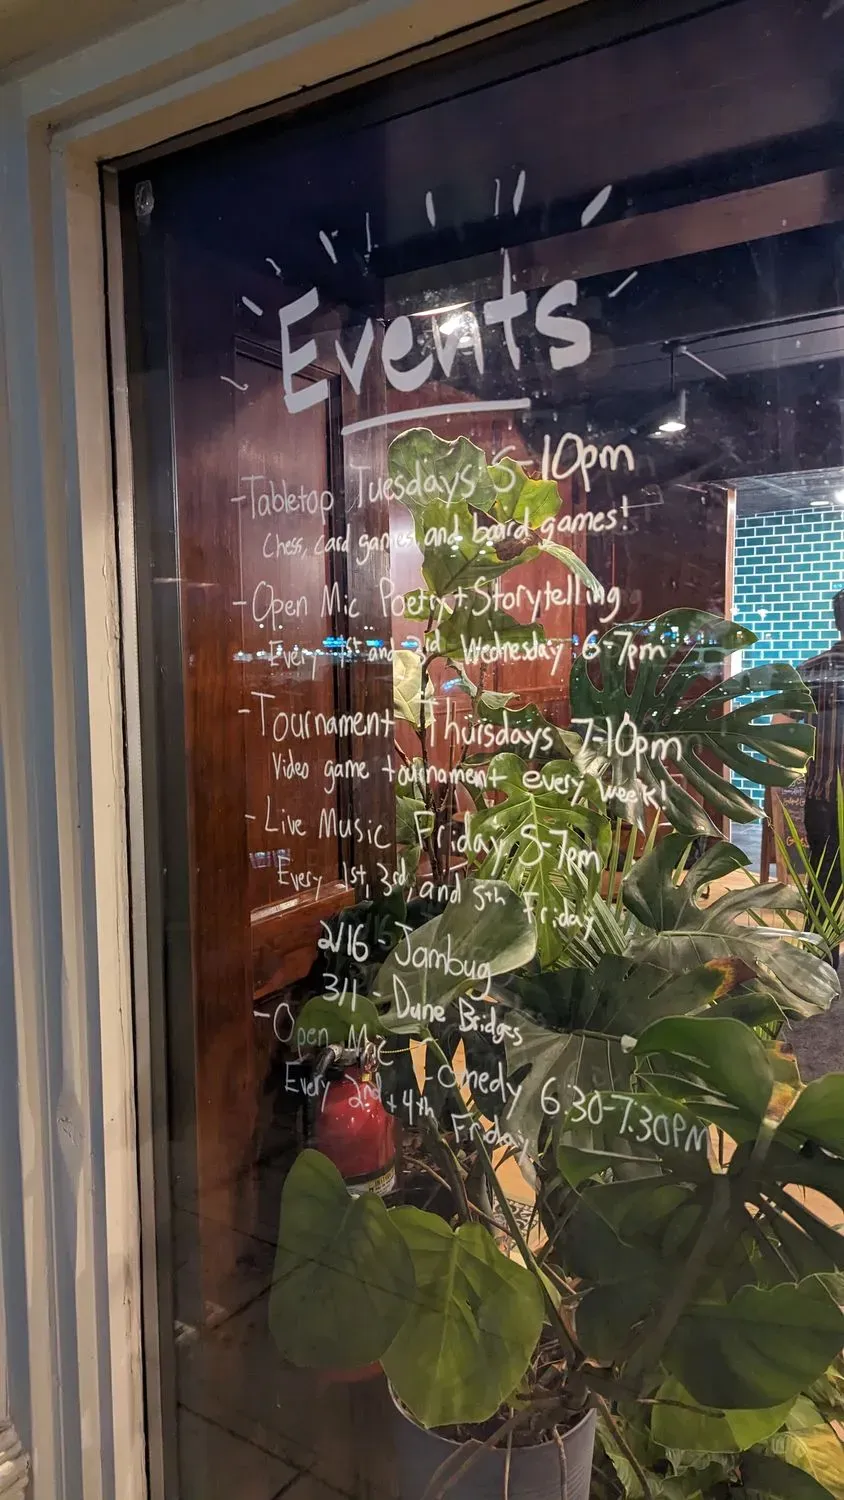 Events
-Tabletop Tuesdays 5-10pm
Chess, card games and board games!
-Open Mic Poetry + Storytelling
Every 1st and 3rd Wednesday 6-7pm
-Tournament Thursdays 7-10pm
Video game tournament every week!
-Live Music Friday 5-7pm
Every 1st, 3rd, and 5th Friday
2/16 - Jambug
3/1 - Dune Bridges
-Open Mic Comedy 6:30-7:30PM
Every 2nd + 4th Friday